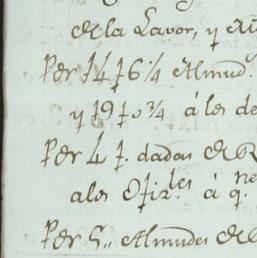 de la Lavor, y
Por 14 f 6 1/4 Almud.
y 19 f 0 3/4 á los de
Por 4 f. dadas de
a los Ofiz.les á q.
Por 5,, Almudes de